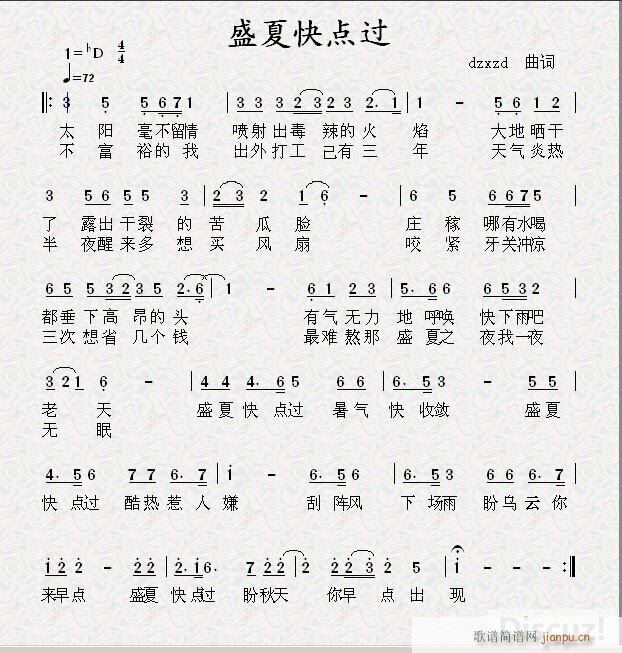 盛夏快点过
1=ᵇD 4/4
♩=72
dzxzd 曲词
‖: 3 5 5 6 7 1 | 3 3 3 2 3 2 3 2. 1 | 1 - 5 6 1 2 |
太 阳 毫不留情 喷射出毒 辣的火 焰 大地晒干
不 富 裕的我 出外打工 己有三 年 天气炎热
3 5 6 5 5 3 | 2 3 2 1 6 - | 6 5 6 6 7 5 |
了 露出干裂 的 苦 瓜 脸 庄 稼 哪有水喝
半 夜醒来多 想 买 风 扇 咬 紧 牙关冲凉
6 5 5 3 2 3 5 2. 6 | 1 - 6 1 2 3 | 5. 6 6 6 5 3 2 |
都垂下高 昂的头 有气无力 地 呼唤 快下雨吧
三次想省 几个钱 最难熬那 盛 夏之 夜我一夜
3 2 1 6 - | 4 4 4. 6 5 6 6 | 6. 5 3 - 5 5 |
老 天 盛夏快 点过 暑气 快 收敛 盛夏
无 眠
4. 5 6 7 7 6. 7 | i - 6. 5 6 | 6. 5 3 6 6 6. 7 |
快 点过 酷热惹 人 嫌 刮 阵风 下 场雨 盼乌云你
i 2 2 - 2 2 | 2. i 6. 7 2 2 | 2 2 2 2 5 | i - - - :‖
来早点 盛夏 快 点过 盼秋天 你早 点 出 现
Discuz!
歌谱简谱网 jianpu.cn